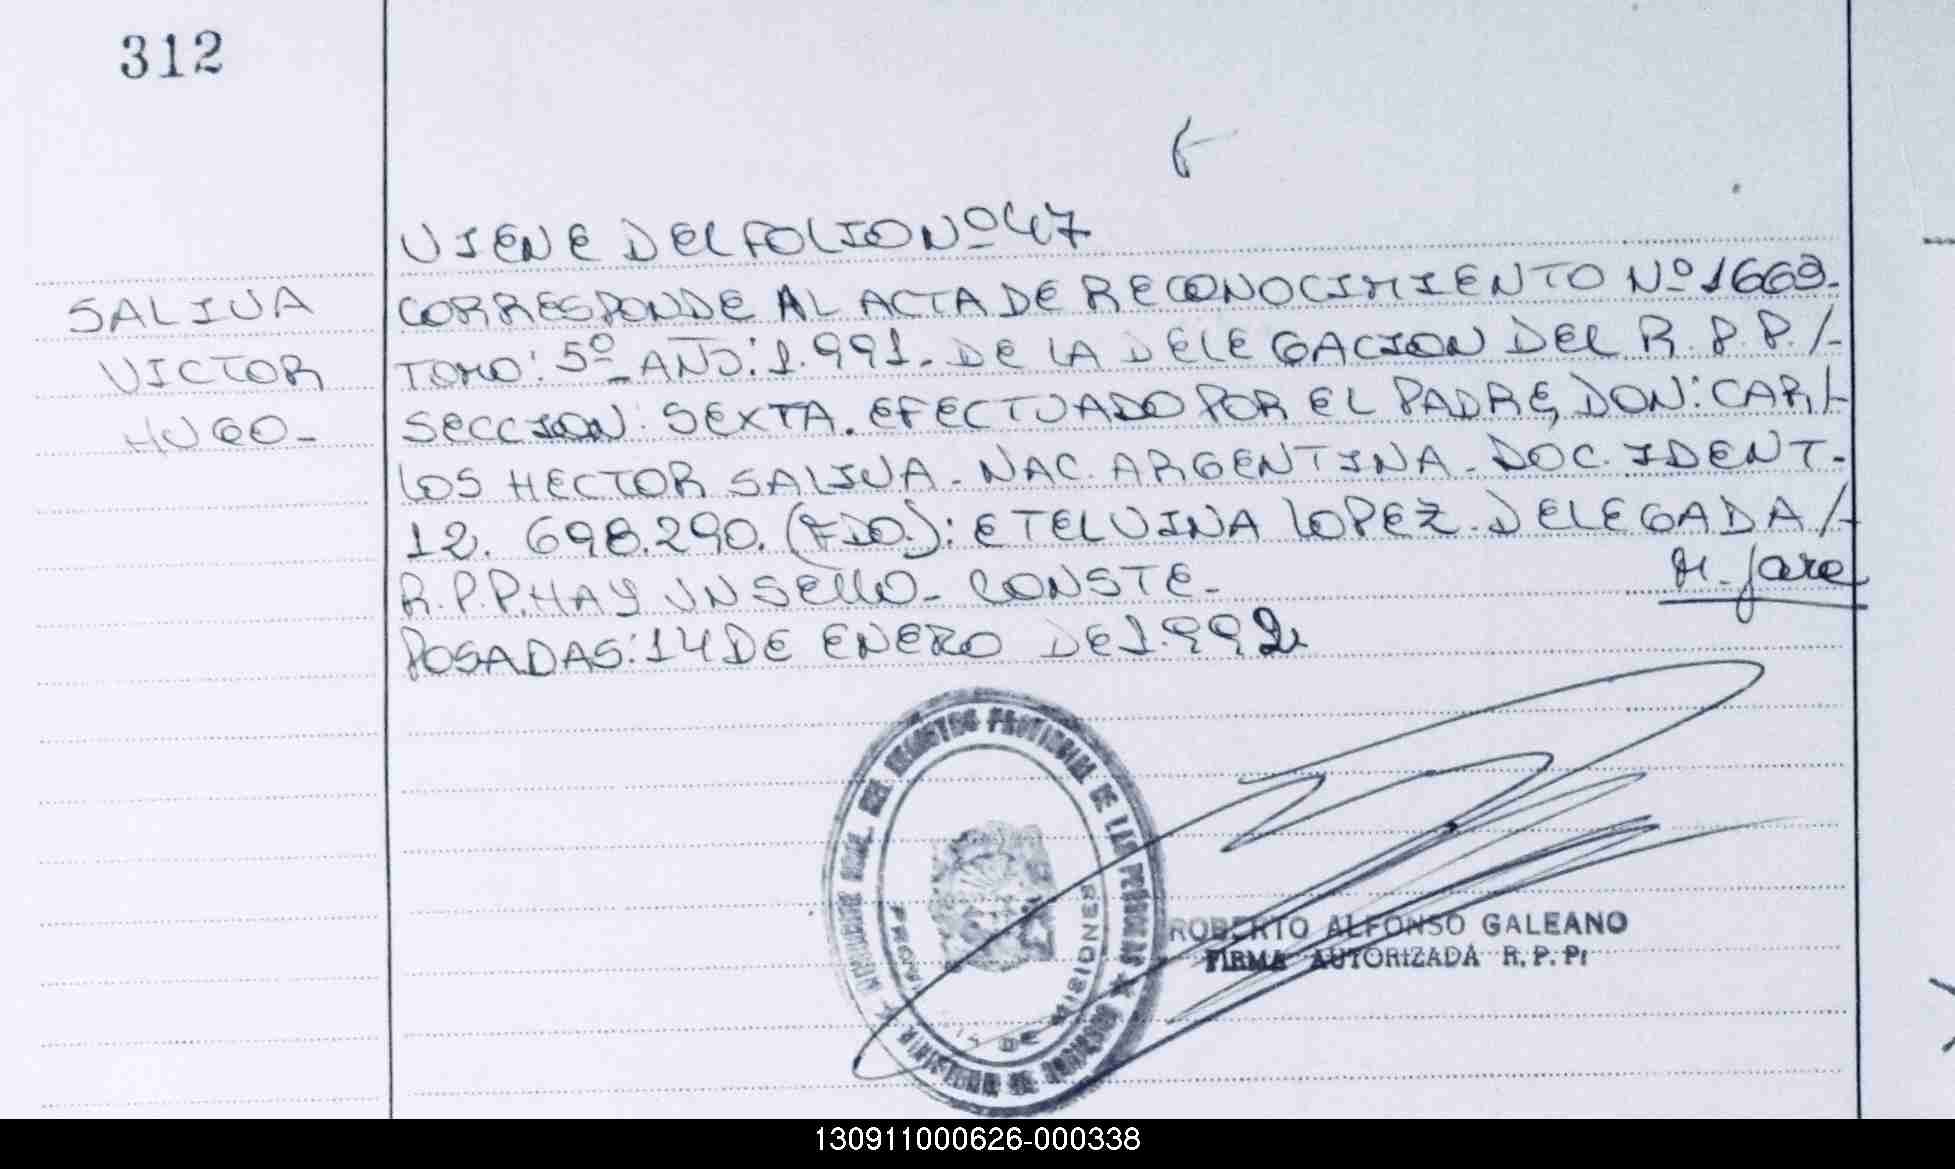 312
VIENE DEL FOLIO Nº 47
SALIVA
VICTOR
HUGO-
CORRESPONDE AL ACTA DE RECONOCIMIENTO Nº 1669.
TOMO: 5º AÑO: 1.991. DE LA DELEGACION DEL R.P.P./-
SECCION: SEXTA. EFECTUADO POR EL PADRE, DON: CAR/-
LOS HECTOR SALIVA. NAC. ARGENTINA. DOC. IDENT.
12. 698.290. (FDO.): ETELVINA LOPEZ. DELEGADA/-
R.P.P. HAY UN SELLO. CONSTE.
POSADAS: 14 DE ENERO DE 1.992
REGISTRO PROVINCIAL DE LAS PERSONAS
MISIONES
ROBERTO ALFONSO GALEANO
FIRMA AUTORIZADA R.P.P.
130911000626-000338